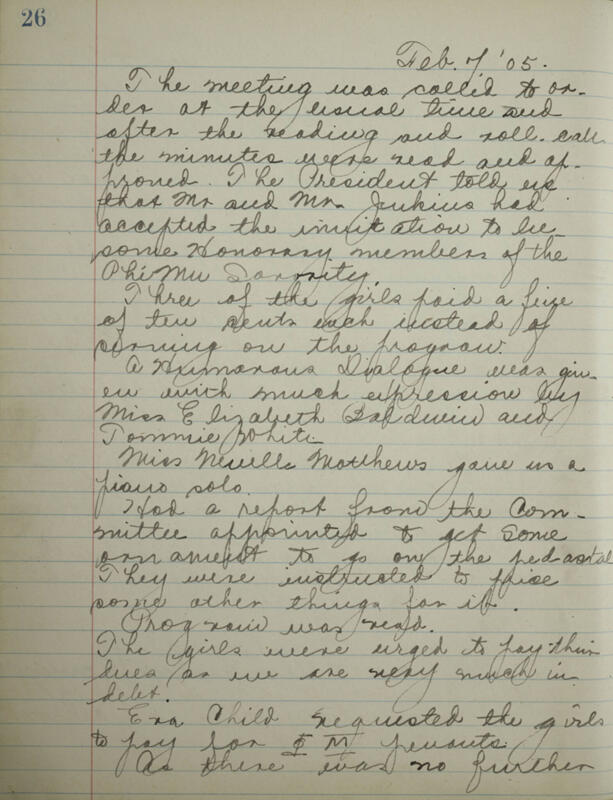 26
Feb. 7 '05.
The meeting was called to or-
der at the usual time and
after the reading and roll-call
the minutes were read and ap-
proved. The President told us
that Mr and Mrs. Jenkins had
accepted the invitation to be
some Honorary members of the
Phi Mu Sorority.
Three of the girls paid a fine
of ten cents each instead of
serving on the program.
A Humorous Dialogue was giv-
en with much expression by
Miss Elizabeth Baldwin and
Tommie White.
Miss Nevelle Matthews gave us a
piano solo.
Had a report from the Com-
mittee appointed to get some
ornament to go on the pedastal
They were instructed to price
some other things for it.
Program was read.
The girls were urged to pay their
dues as we are very much in
debt.
Eva Child requested the girls
to pay for Φ M penants.
As there was no further